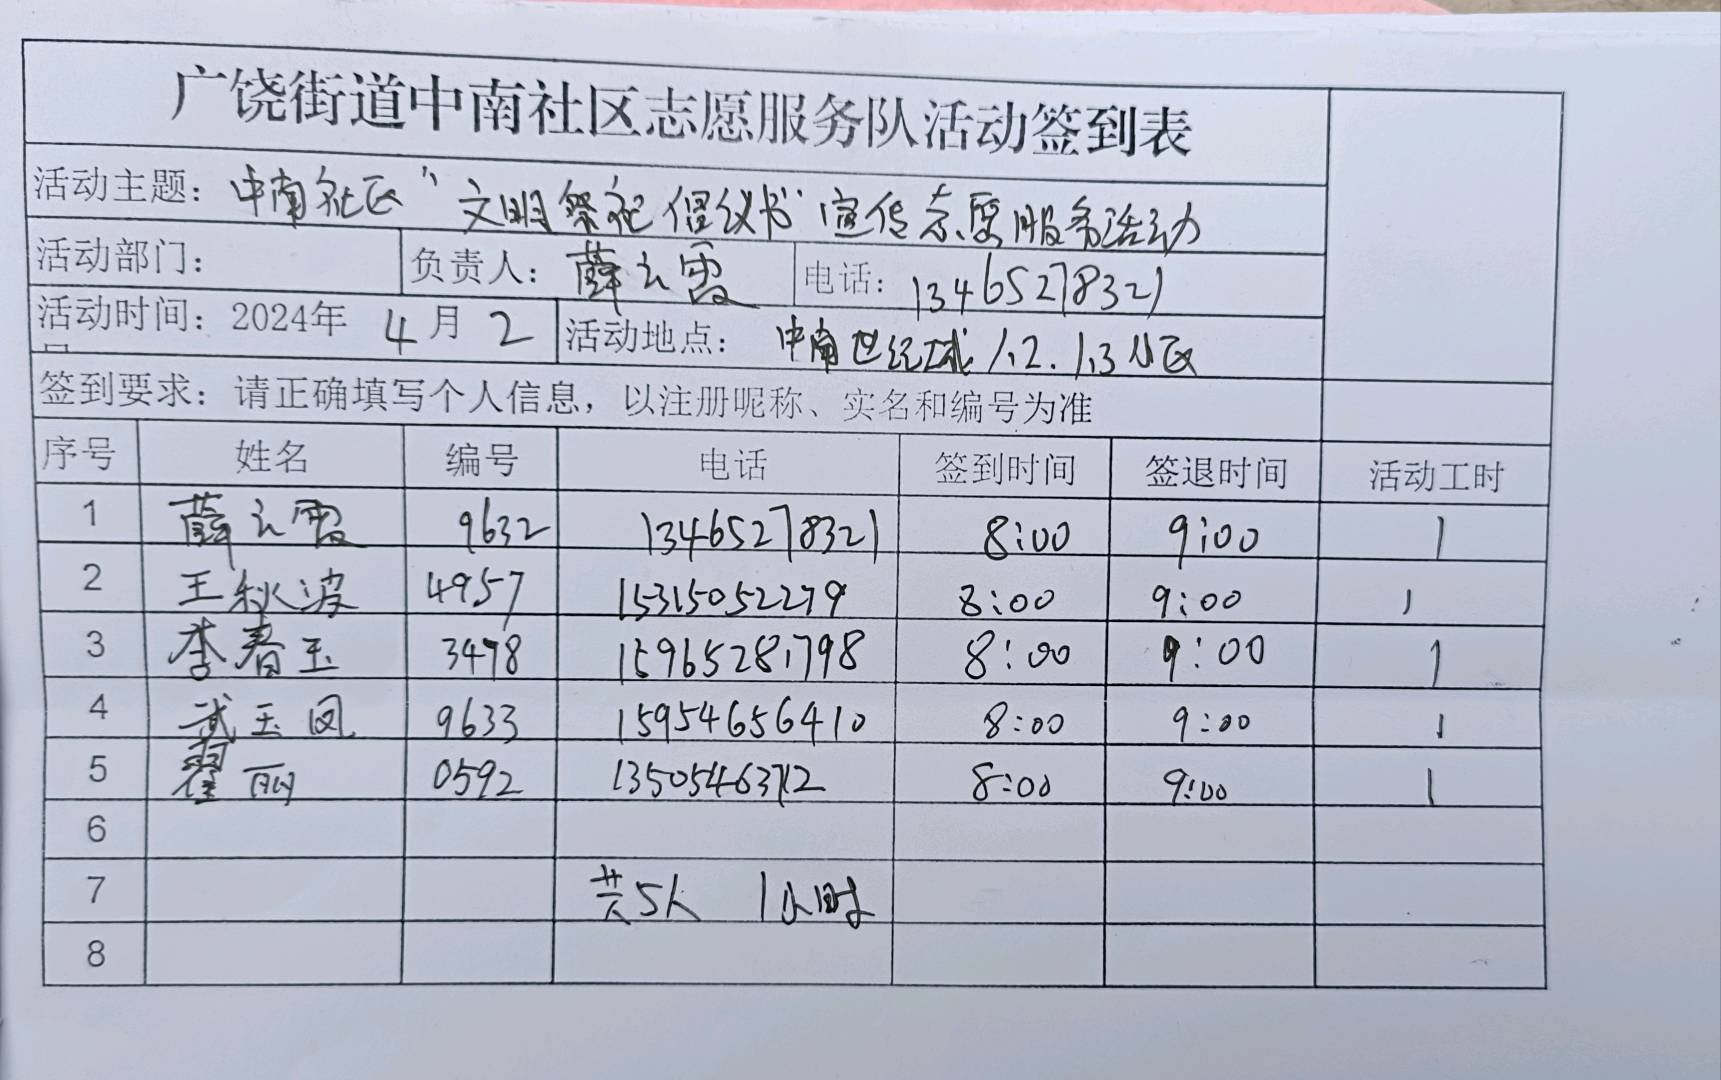 广饶街道中南社区志愿服务队活动签到表
活动主题：中南社区“文明祭祀倡议书”宣传志愿服务活动
活动部门： 负责人：薛云霞 电话：13465278321
活动时间：2024年 4月 2 活动地点：中南世纪城1.2.1.3小区
签到要求：请正确填写个人信息，以注册昵称、实名和编号为准
序号 姓名 编号 电话 签到时间 签退时间 活动工时
1 薛云霞 9632 13465278321 8:00 9:00 1
2 王秋波 4957 15315052279 8:00 9:00 1
3 李春玉 3478 15965281798 8:00 9:00 1
4 武玉凤 9633 15954656410 8:00 9:00 1
5 翟丽 0592 8:00 9:00 1
6
7 共5人 1小时
8